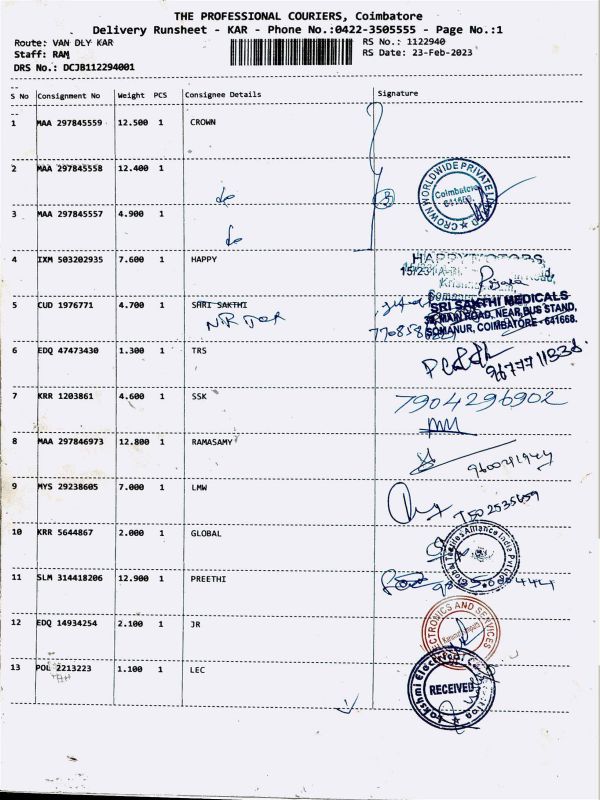 THE PROFESSIONAL COURIERS, Coimbatore
Delivery Runsheet - KAR - Phone No.:0422-3505555 - Page No.:1
Route: VAN DLY KAR
RS No.: 1122940
Staff: RAM
RS Date: 23-Feb-2023
DRS No.: DCJB112294001
S No Consignment No Weight PCS Consignee Details Signature
1 MAA 297845559 12.500 1 CROWN
2 MAA 297845558 12.400 1
do
3
CROWN WORLDWIDE PRIVATE LIMITED
Coimbatore
3 MAA 297845557 4.900 1
do
4 IXM 503202935 7.600 1 HAPPY
HAPPY MOTORS
5 CUD 1976771 4.700 1 SHRI SAKTHI
SRI SAKTHI MEDICALS
MAIN ROAD, NEAR BUS STAND,
SOMANUR, COIMBATORE - 641668.
6 EDQ 47473430 1.300 1 TRS
9677711838
7 KRR 1203861 4.600 1 SSK
7904296902
8 MAA 297846973 12.800 1 RAMASAMY
9 MYS 29238605 7.000 1 LMW
7502535659
10 KRR 5644867 2.000 1 GLOBAL
Global Textiles Alliance India Pvt Ltd
11 SLM 314418206 12.900 1 PREETHI
12 EDQ 14934254 2.100 1 JR
13 POL 2213223 1.100 1 LEC
Lakshmi Electrical
RECEIVED